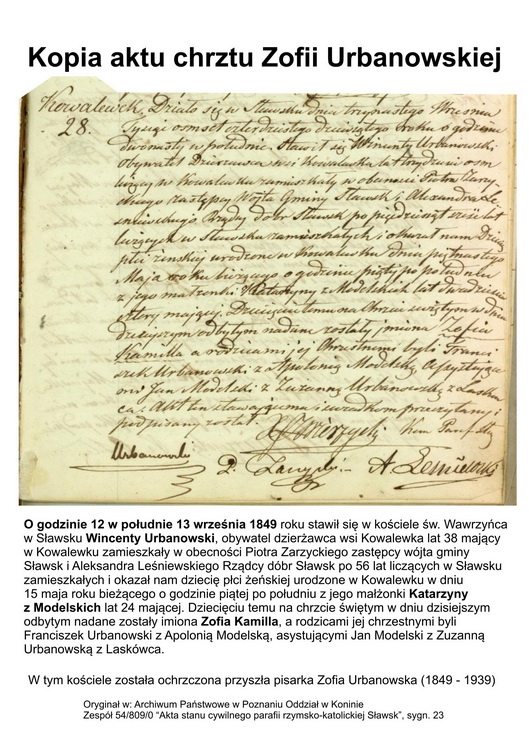 Kopia aktu chrztu Zofii Urbanowskiej
Kowalewek
28.
Działo się w Sławsku dnia trzynastego Września
Tysiąc osmset czterdziestego dziewiątego Roku o godzinie
dwunastej w południe, Stawił się Wincenty Urbanowski
obywatel Dzierzawca wsi Kowalewka lat trzydzieści osm
liczący w Kowalewku zamieszkały w obecności Piotra Zarzy
ckiego zastępcy Wójta Gminy Sławsk i Alexandra Le
śniewskiego Rządcy dóbr Sławsk po pięćdziesiąt sześć lat
liczących w Sławsku zamieszkałych i okazał nam Dziecię
płci żenskiej urodzone w Kowalewku dnia piętnastego
Maja roku bieżącego o godzinie piątej po południu
z jego małżonki Katarzyny z Modelskich lat dwadzieścia
cztery mającej. Dziecięciu temu na Chrzcie świętym w dniu
dzisiejszym odbytym nadane zostały imiona Zofia
Kamilla a rodzicami jej Chrzestnemi byli Franci
szek Urbanowski z Apolonią Modelską, Assystujące
mi Jan Modelski z Zuzanną Urbanowską z Laskow
ca. Akt ten stawającemu i świadkom przeczytany i
podpisany został.
Urbanowski
P. Zarzycki A.
O godzinie 12 w południe 13 września 1849 roku stawił się w kościele św. Wawrzyńca
w Sławsku Wincenty Urbanowski, obywatel dzierżawca wsi Kowalewka lat 38 mający
w Kowalewku zamieszkały w obecności Piotra Zarzyckiego zastępcy wójta gminy
Sławsk i Aleksandra Leśniewskiego Rządcy dóbr Sławsk po 56 lat liczących w Sławsku
zamieszkałych i okazał nam dziecię płci żeńskiej urodzone w Kowalewku w dniu
15 maja roku bieżącego o godzinie piątej po południu z jego małżonki Katarzyny
z Modelskich lat 24 mającej. Dziecięciu temu na chrzcie świętym w dniu dzisiejszym
odbytym nadane zostały imiona Zofia Kamilla, a rodzicami jej chrzestnemi byli
Franciszek Urbanowski z Apolonią Modelską, asystującymi Jan Modelski z Zuzanną
Urbanowską z Laskówca.
W tym kościele została ochrzczona przyszła pisarka Zofia Urbanowska (1849 - 1939)
Oryginał w: Archiwum Państwowe w Poznaniu Oddział w Koninie
Zespół 54/809/0 “Akta stanu cywilnego parafii rzymsko-katolickiej Sławsk”, sygn. 23